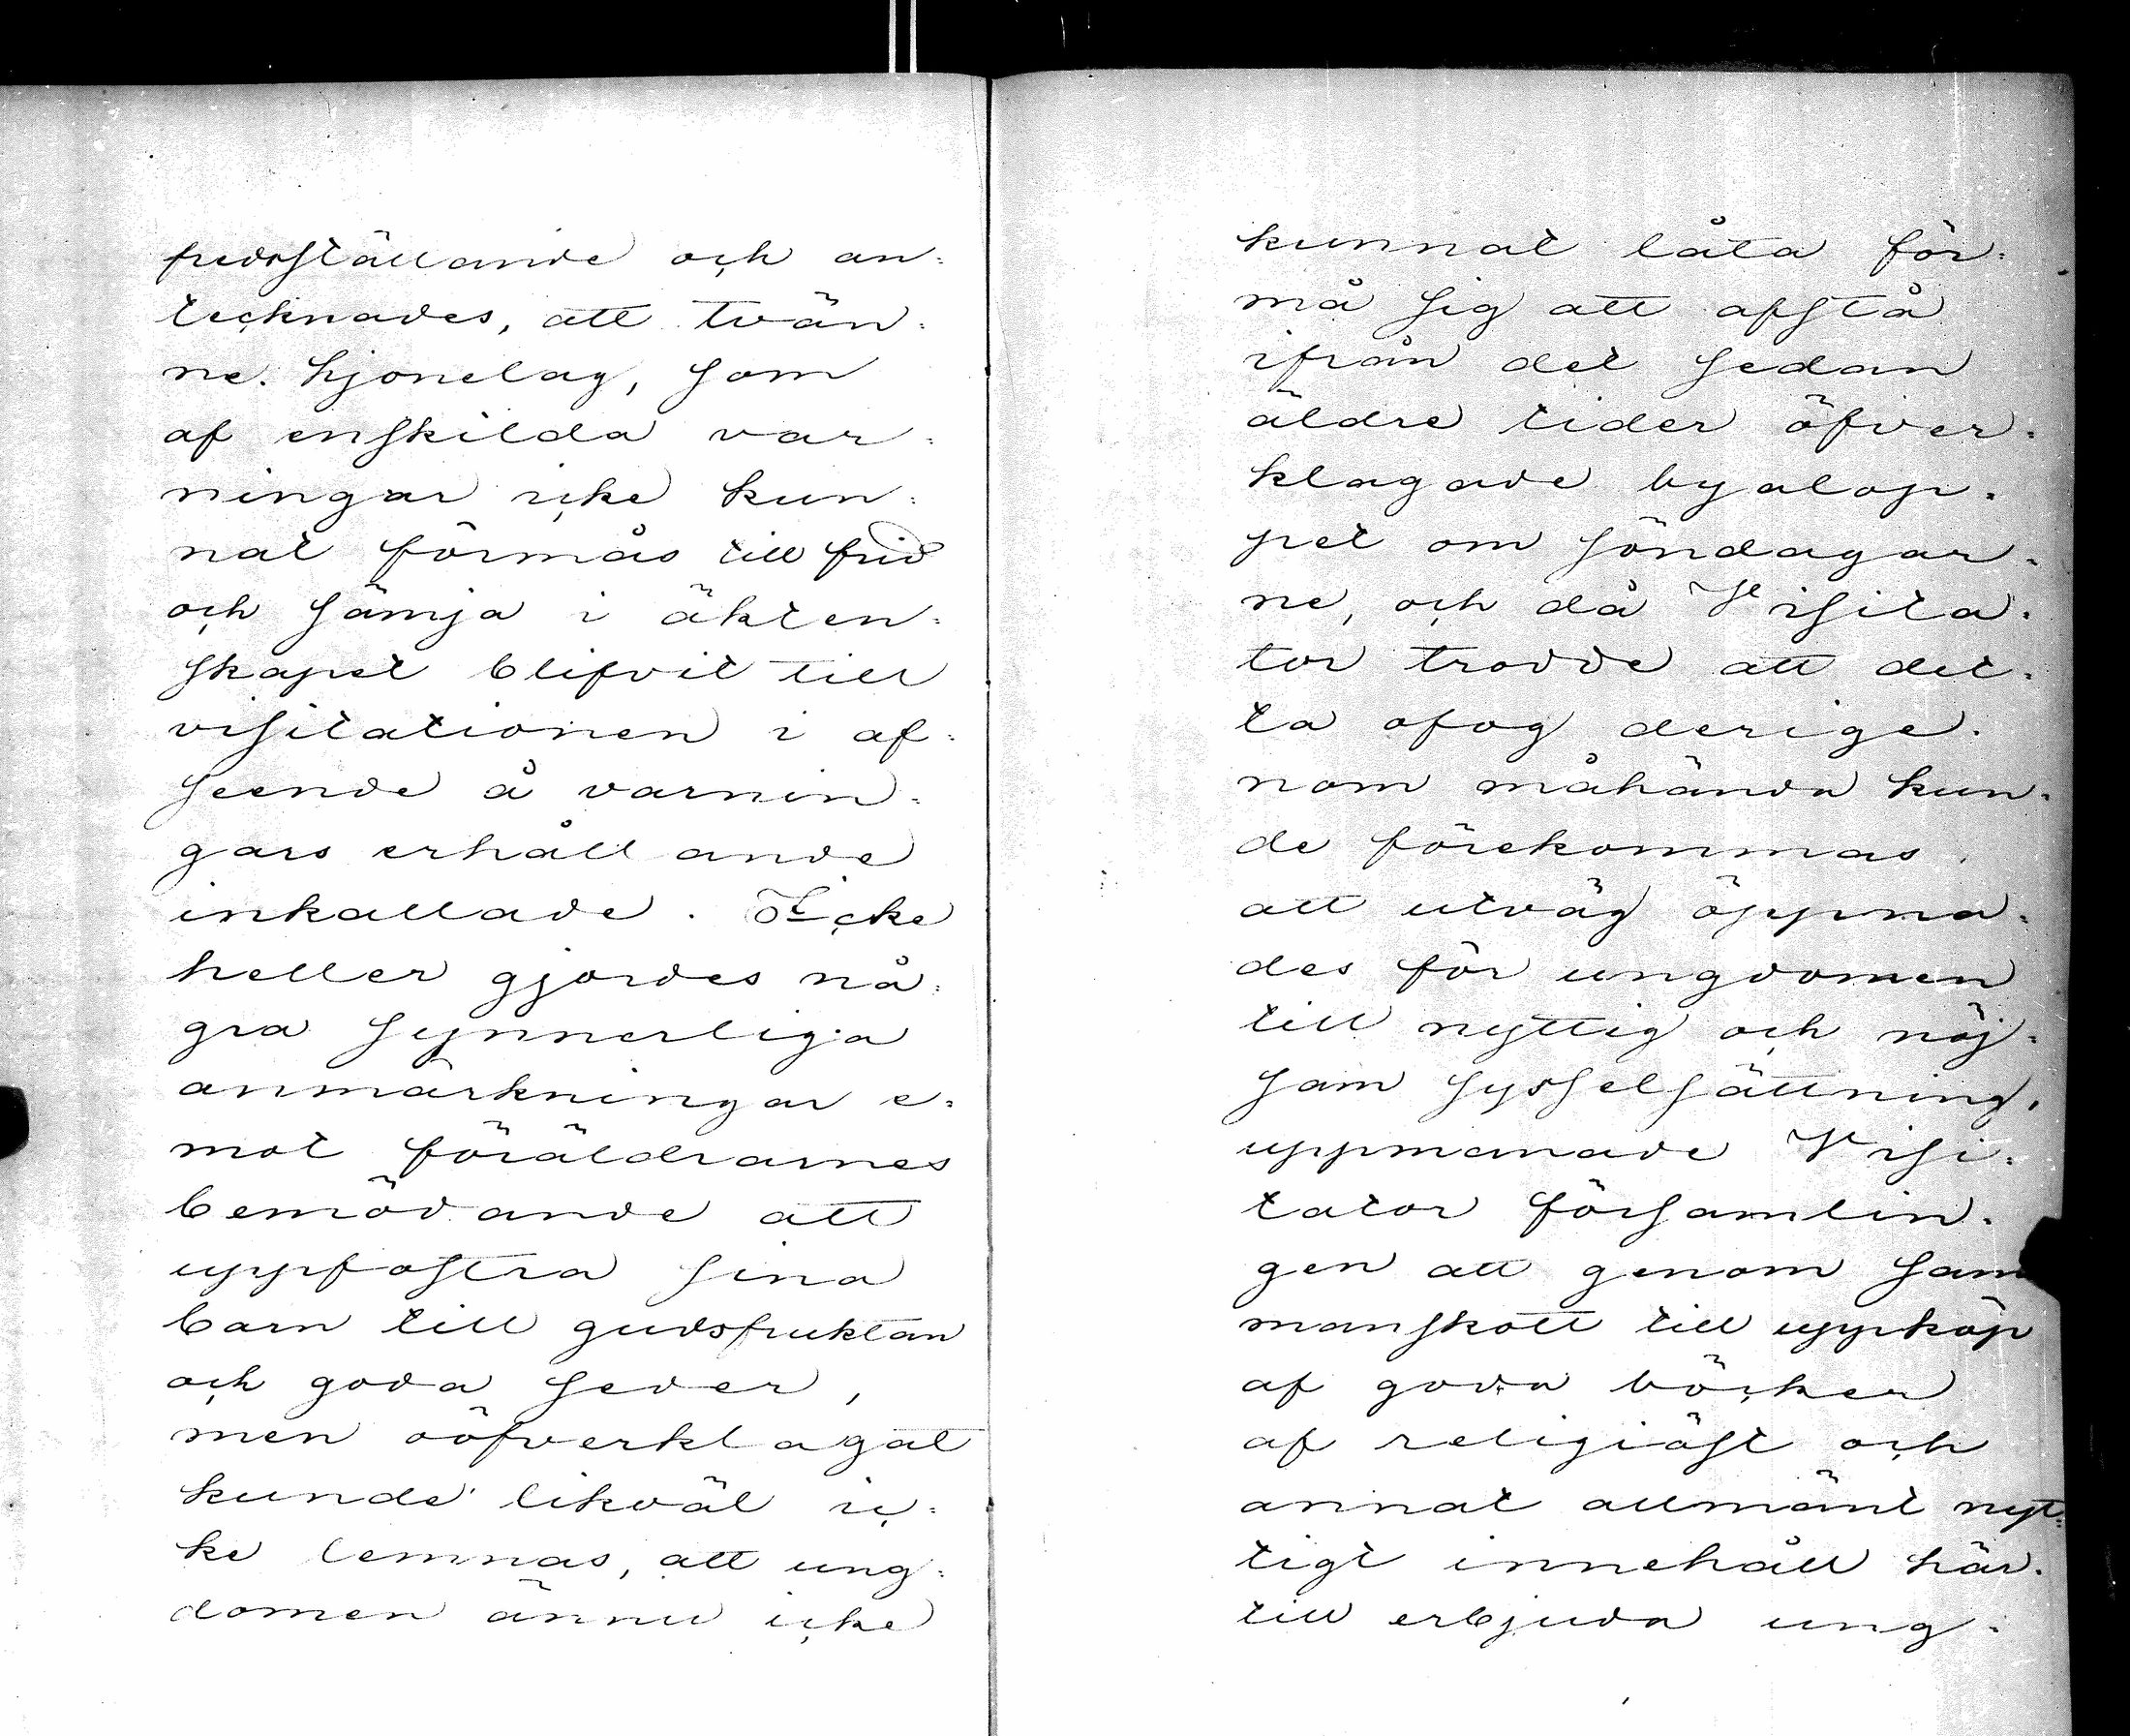 fredsställande och an=
tecknades, att tvän=
ne. hjonelag, som
af enskilda var=
ningar icke kun=
nat förmås till frid
och sämja i äkten=
skapet blifvit till
visitationen i af=
seende å varnin=
gars erhållande
inkallade. Icke
heller gjordes nå=
gra synnerliga
anmärkningar e=
mot föräldrarnes
bemödande att
uppfostra sina
barn till gudsfruktan
och goda seder,
men oöfverklagat
kunde likväl ic=
ke lemnas, att ung=
domen ännu icke
kunnat låta för=
må sig att afstå
ifrån det sedan
äldre tider öfver=
klagade byalop=
pet om söndagar=
ne, och då Visita=
tor trodde att det=
ta ofog derige=
nom måhända kun=
de förekommas,
att utväg öppna=
des för ungdomen
till nyttig och nöj=
sam sysselsättning,
uppmanade Visi=
tator församlin=
gen att genom sam
manskott till uppköp
af goda böcker
af religiöst och
annat allmänt nyt=
tigt innehåll här=
till erbjuda ung=